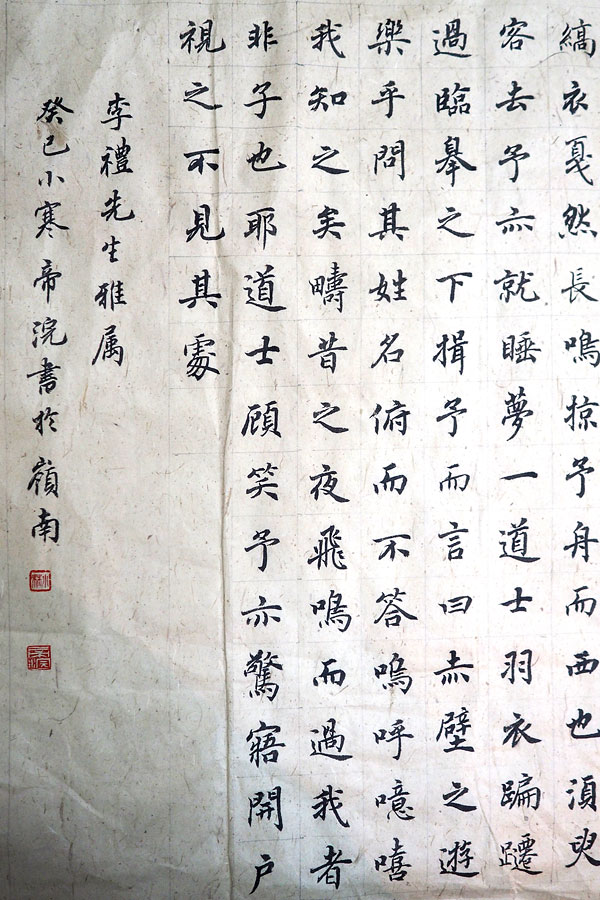 縞衣戛然長鳴掠予舟而西也須臾
客去予亦就睡夢一道士羽衣蹁躚
過臨皋之下揖予而言曰赤壁之遊
樂乎問其姓名俯而不答嗚呼噫嘻
我知之矣疇昔之夜飛鳴而過我者
非子也耶道士顧笑予亦驚寤開戶
視之不見其處
李禮先生雅属
癸巳小寒帝浣書於嶺南